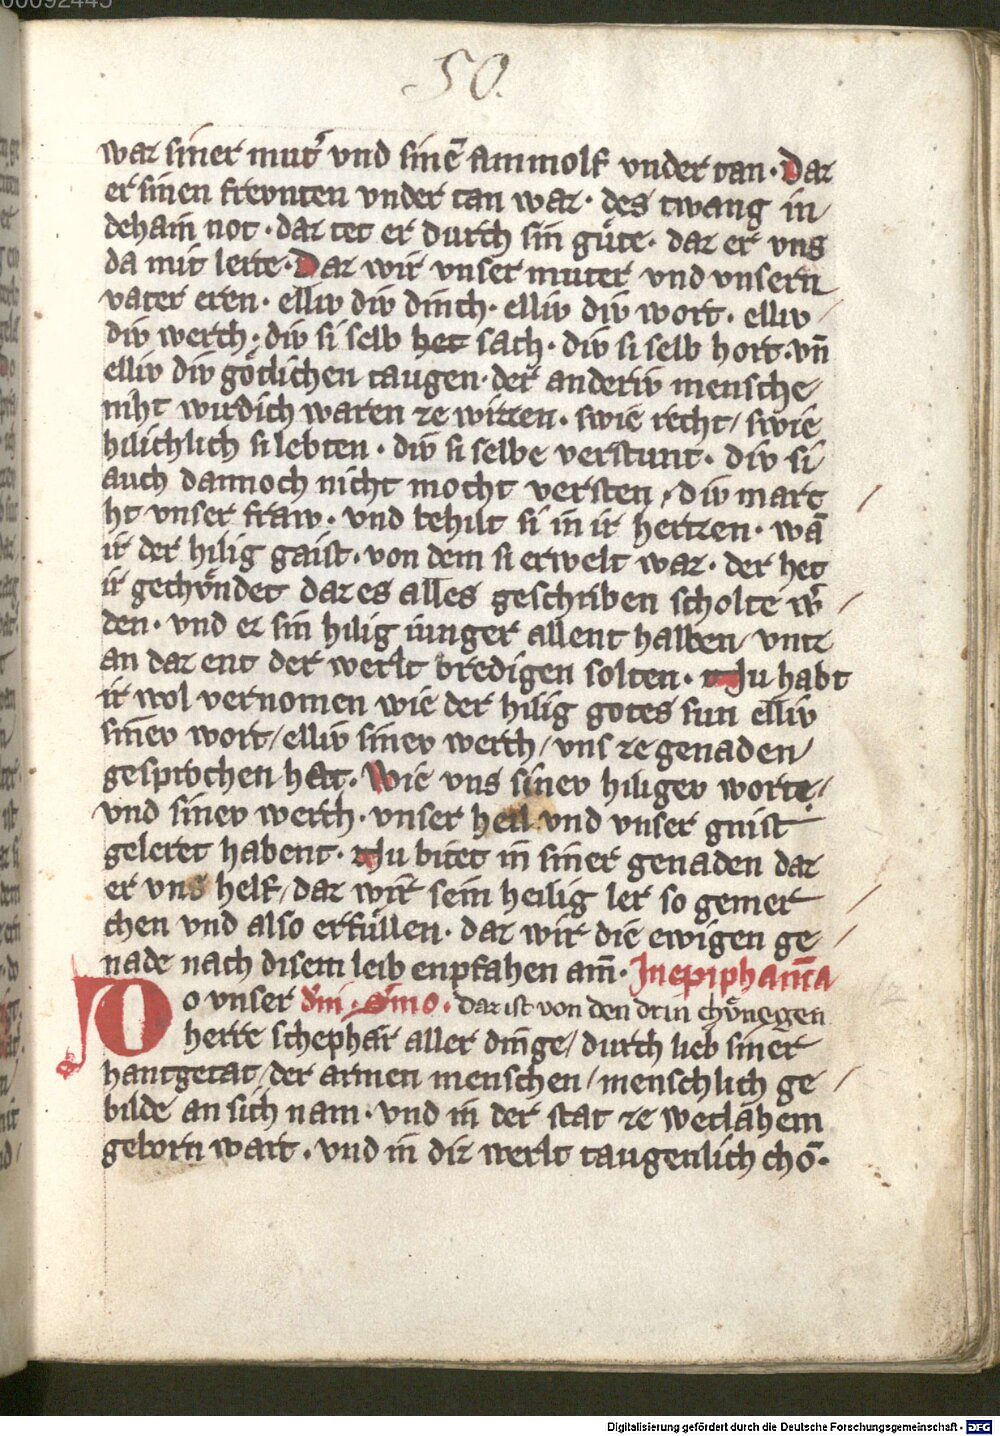 00092445
50.
war siner mut᷑ vnd sinē ammolf vnder tan · Daz
er sinen frevnten vnder tan waz · des twang in/
dehain not · daz tet er durch sin guͤte · daz er vns
da mit lerte · Daz wir vnser muter vnd vnsern
vater eren · elliv div dinch · elliv div wort · elliv /
div werch · div si selb het sach · div si selb hort · vñ
elliv div goͤtlichen taugen · der anderiv mensche/
niht wirdich waren ze wizzen · swie recht / swie
hilichlich si lebten · div si selbe verstunt · div si/
auch dannoch nicht mocht versten / div marc /
ht vnser fraw · vnd behilt si in ir hertzen · wā
ir der hilig gaist · von dem si erwelt waz · der het
ir gechuͤndet daz es alles geschriben scholte w᷑ /
den · vnd ez sin hilig iunger allent halben / vntz
an daz ent der werlt bredigen solten · Nu habt
ir wol vernomen wie der hilig gotes sun elliv
sinev wort / elliv sinev werch / vns ze genaden /
gesprochen hat · Wie vns sinev hiligev worte /
vnd sinev werch · vnser heil vnd vnser gnist
geleret habent · Nu bitet in siner genaden daz
er vns helf / daz wir sein heilig ler so gemer /
chen vnd also erfuͤllen · daz wir die ewigen ge /
nade nach disem leib enpfahen am̄ · In epiphania
Do vnser dn̄i · daz ist von den drin choͤnegen
herre schephaͤr aller dinge / durch lieb siner
hantgetat / der armen menschen / menschlich ge /
bilde an sich nam · vnd in der stat ze wetlahem
geborn wart · vnd in diz werlt taugenlich chō ·
Digitalisierung gefördert durch die Deutsche Forschungsgemeinschaft - DFG